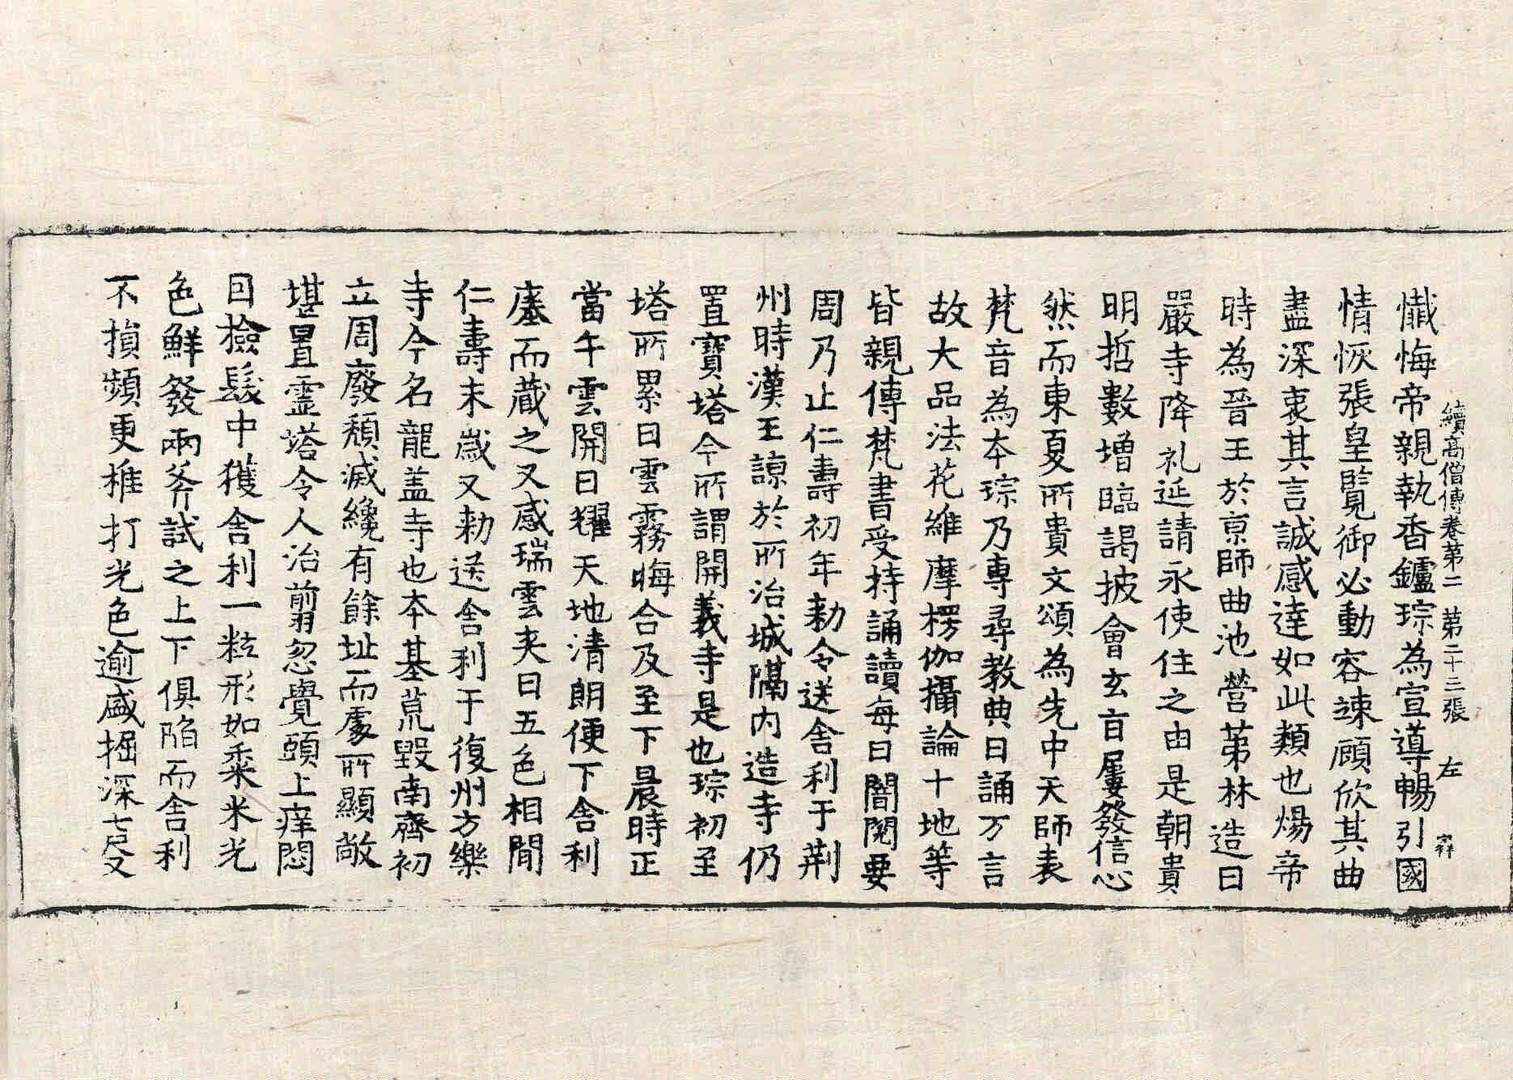 續高僧傳卷第二　第二十三張　左
懺悔帝親執香鑪琮為宣導暢引國
情恢張皇覽御必動容竦顧欣其曲
盡深衷其言誠感達如此類也煬帝
時為晉王於京師曲池營苐林造日
嚴寺降礼延請永使住之由是朝貴
明哲數增臨謁披會玄旨屢發信心
然而東夏所貴文頌為先中天師表
梵音為本琮乃專尋教典日誦万言
故大品法花維摩楞伽攝論十地等
皆親傳梵書受持誦讀每日闇閱要
周乃止仁壽初年勑令送舍利于荆
州時漢王諒於所治城隔內造寺仍
置寶塔今所謂開義寺是也琮初至
塔所累日雲霧晦合及至下晨時正
當午雲開日耀天地清朗便下舍利
塞而藏之又感瑞雲夾日五色相間
仁壽末歲又勑送舍利于復州方樂
寺今名龍盖寺也本基荒毀南齊初
立周廢頹滅纔有餘址而處所顯敞
堪置靈塔令人治翦忽覺頭上痒悶
回撿髮中獲舍利一粒形如黍米光
色鮮發兩斧試之上下俱陷而舍利
不損頻更椎打光色逾盛掘深七尺